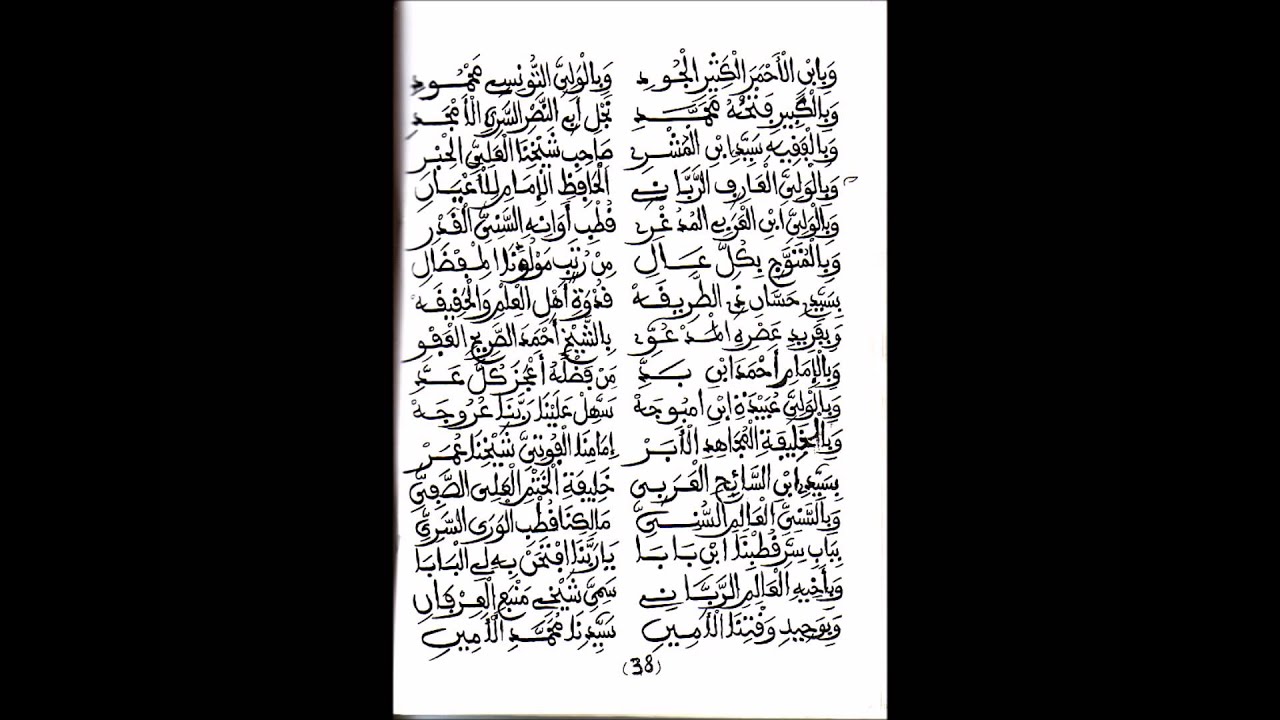 وَبِابْنِ الْأَحْمَرِ الْكَثِيرِ الْجُودِ وَبِالْوَلِيِّ التُّونِسِي مَحْمُودِ
وَبِالْكَبِيرِ فَتْحُهُ مُحَمَّدِ نَجْلِ أَبِي النَّصْرِ السَّرِيِّ الْأَمْجَدِ
وَبِالْفَقِيهِ سَيِّدِ ابْنِ الْمُشْرِي صَاحِبِ شَيْخِنَا الْعَلِيِّ الْحِبْرِ
وَبِالْوَلِيِّ الْعَارِفِ الرَّبَّانِي الْحَافِظِ الْإِمَامِ لِلْأَعْيَانِ
وَبِالْوَلِيِّ ابْنِ الْعَرَبِي الْمُدَغْرِي قُطْبِ أَوَانِهِ السَّنِيِّ الْقَدْرِ
وَبِالْمُتَوَّجِ بِكُلِّ عَالِ مِنْ رُتَبِ مَوْلَانَا الْمِفْضَالِ
بِسَيِّدِ حَسَّانِ ذِي الطَّرِيقَهْ قُدْوَةِ أَهْلِ الْعِلْمِ وَالْحَقِيقَهْ
وَبِفَرِيدِ عَصْرِهِ الْمَدْعُوِّ بِالشَّيْخِ أَحْمَدَ الصَّرِيحِ الْعَفْوِ
وَبِالْإِمَامِ أَحْمَدَ ابْنِ بَدِّ مَنْ فَضْلُهُ أَعْجَزَ كُلَّ عَدِّ
وَبِالْوَلِيِّ عُبَيْدَةَ ابْنِ امْبُوجَهْ سَهِّلْ عَلَيْنَا رَبَّنَا عُرُوجَهْ
وَبِالْخَلِيفَةِ الْمُجَاهِدِ الْأَبَرْ إِمَامِنَا الْفُوتِيِّ شَيْخِنَا عُمَرْ
بِسَيِّدِ ابْنِ السَّائِحِ الْعَرَبِي خَلِيفَةِ الْخَتْمِ الْعَلِيِّ الصَّفِيِّ
وَبِالسَّنِيِّ الْعَالِمِ السُّنِّيِّ مَالِكِنَا قُطْبِ الْوَرَى السَّرِيِّ
بِبَابِ سِرِّ قُطْبِنَا ابْنِ بَابَا يَا رَبَّنَا افْتَحَنْ بِهِ لِي الْبَابَا
وَبِأَخِيهِ الْعَالِمِ الرَّبَّانِي سَمِيِّ شَيْخِي مَنْبَعِ الْعِرْفَانِ
وَبِوَحِيدِ وَقْتِنَا الْأَمِينِ سَيِّدِنَا مُحَمَّدِ الْأَمِينِ
(38)